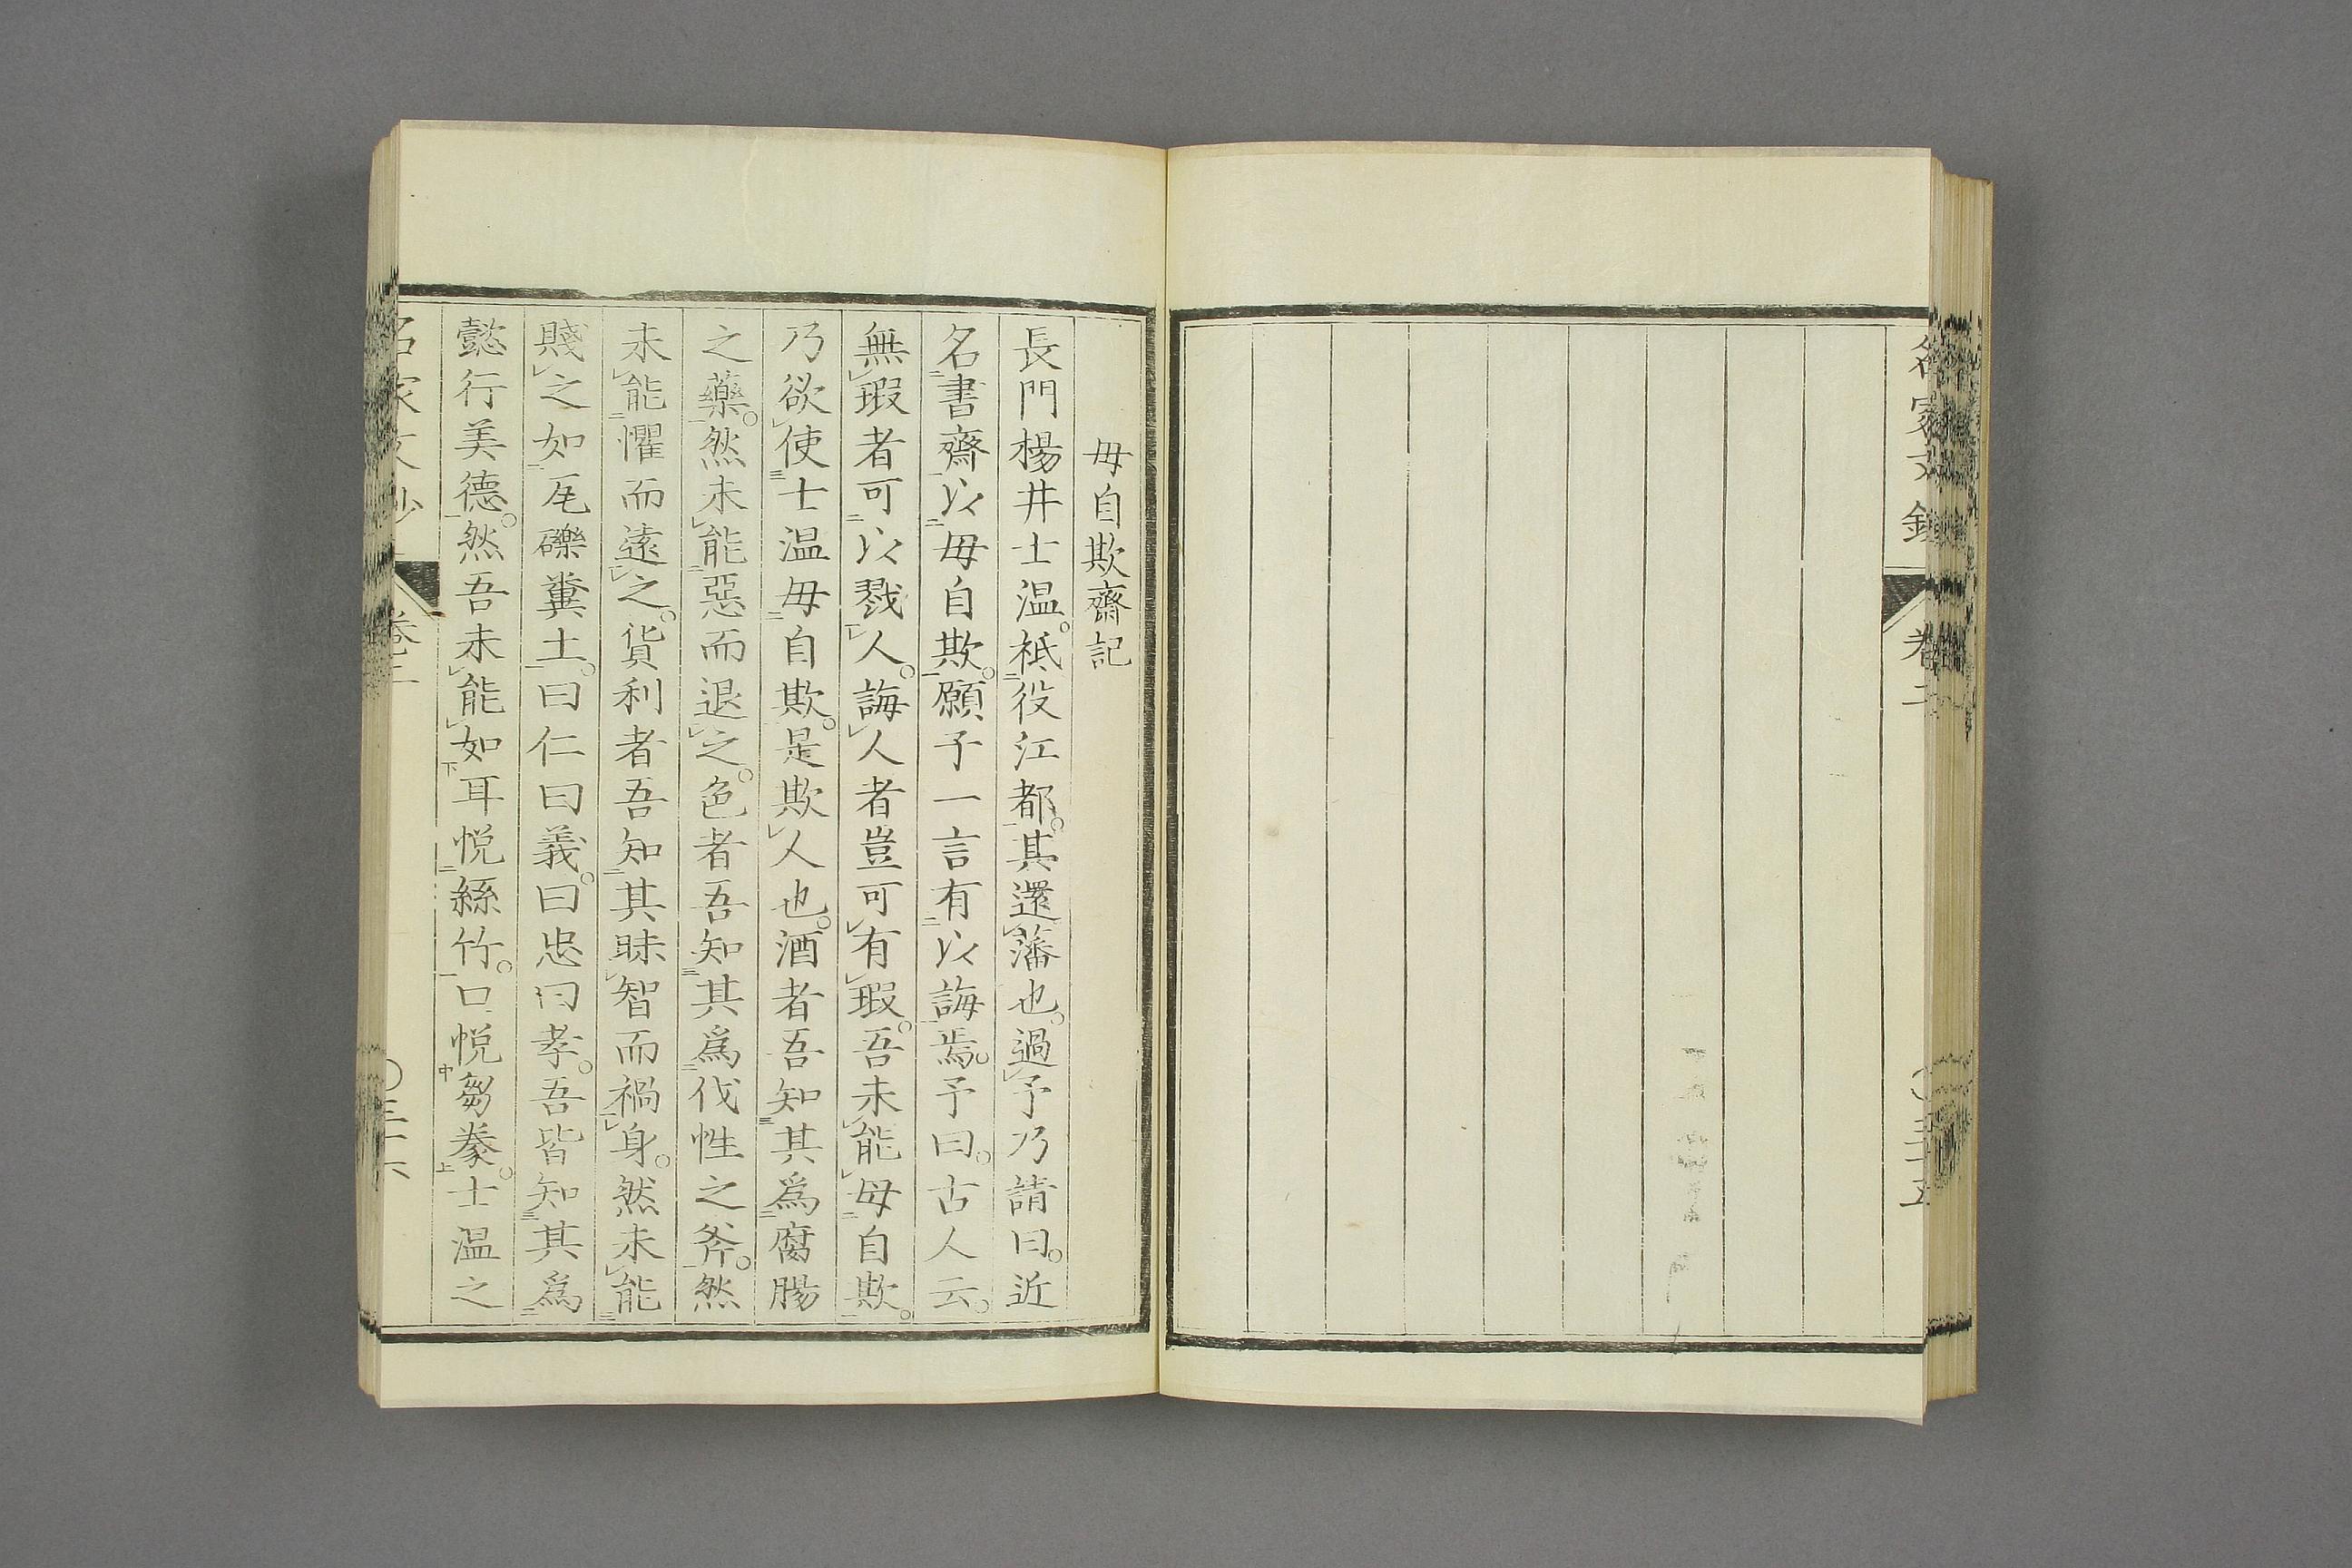 名家文鈔
卷二
毋自欺齋記
長門楊井士温。祗役江都。其還藩也。過予乃請曰。近
名書齋以毋自欺。願予一言有以誨焉。予曰。古人云。
無瑕者可以戮人。誨人者豈可有瑕。吾未能毋自欺。
乃欲使士温毋自欺。是欺人也。酒者吾知其爲腐腸
之藥。然未能惡而退之。色者吾知其爲伐性之斧。然
未能懼而遠之。貨利者吾知其昧智而禍身。然未能
賤之如瓦礫糞土。曰仁曰義。曰忠曰孝。吾皆知其爲
懿行美德。然吾未能如耳悦絲竹。口悦芻豢。士温之
名家文鈔
卷二